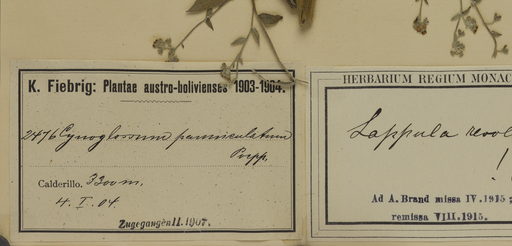 K. Fiebrig: Plantae austro-bolivienses 1903-1904.
2476 Cynoglossum panniculatum
Poepp.
Calderillo. 3300 m.
4. I. 04
Zugegangen II. 1907.
HERBARIUM REGIUM MONAC
Lappula revol
!
Ad A. Brand missa IV. 1915;
remissa VIII. 1915.